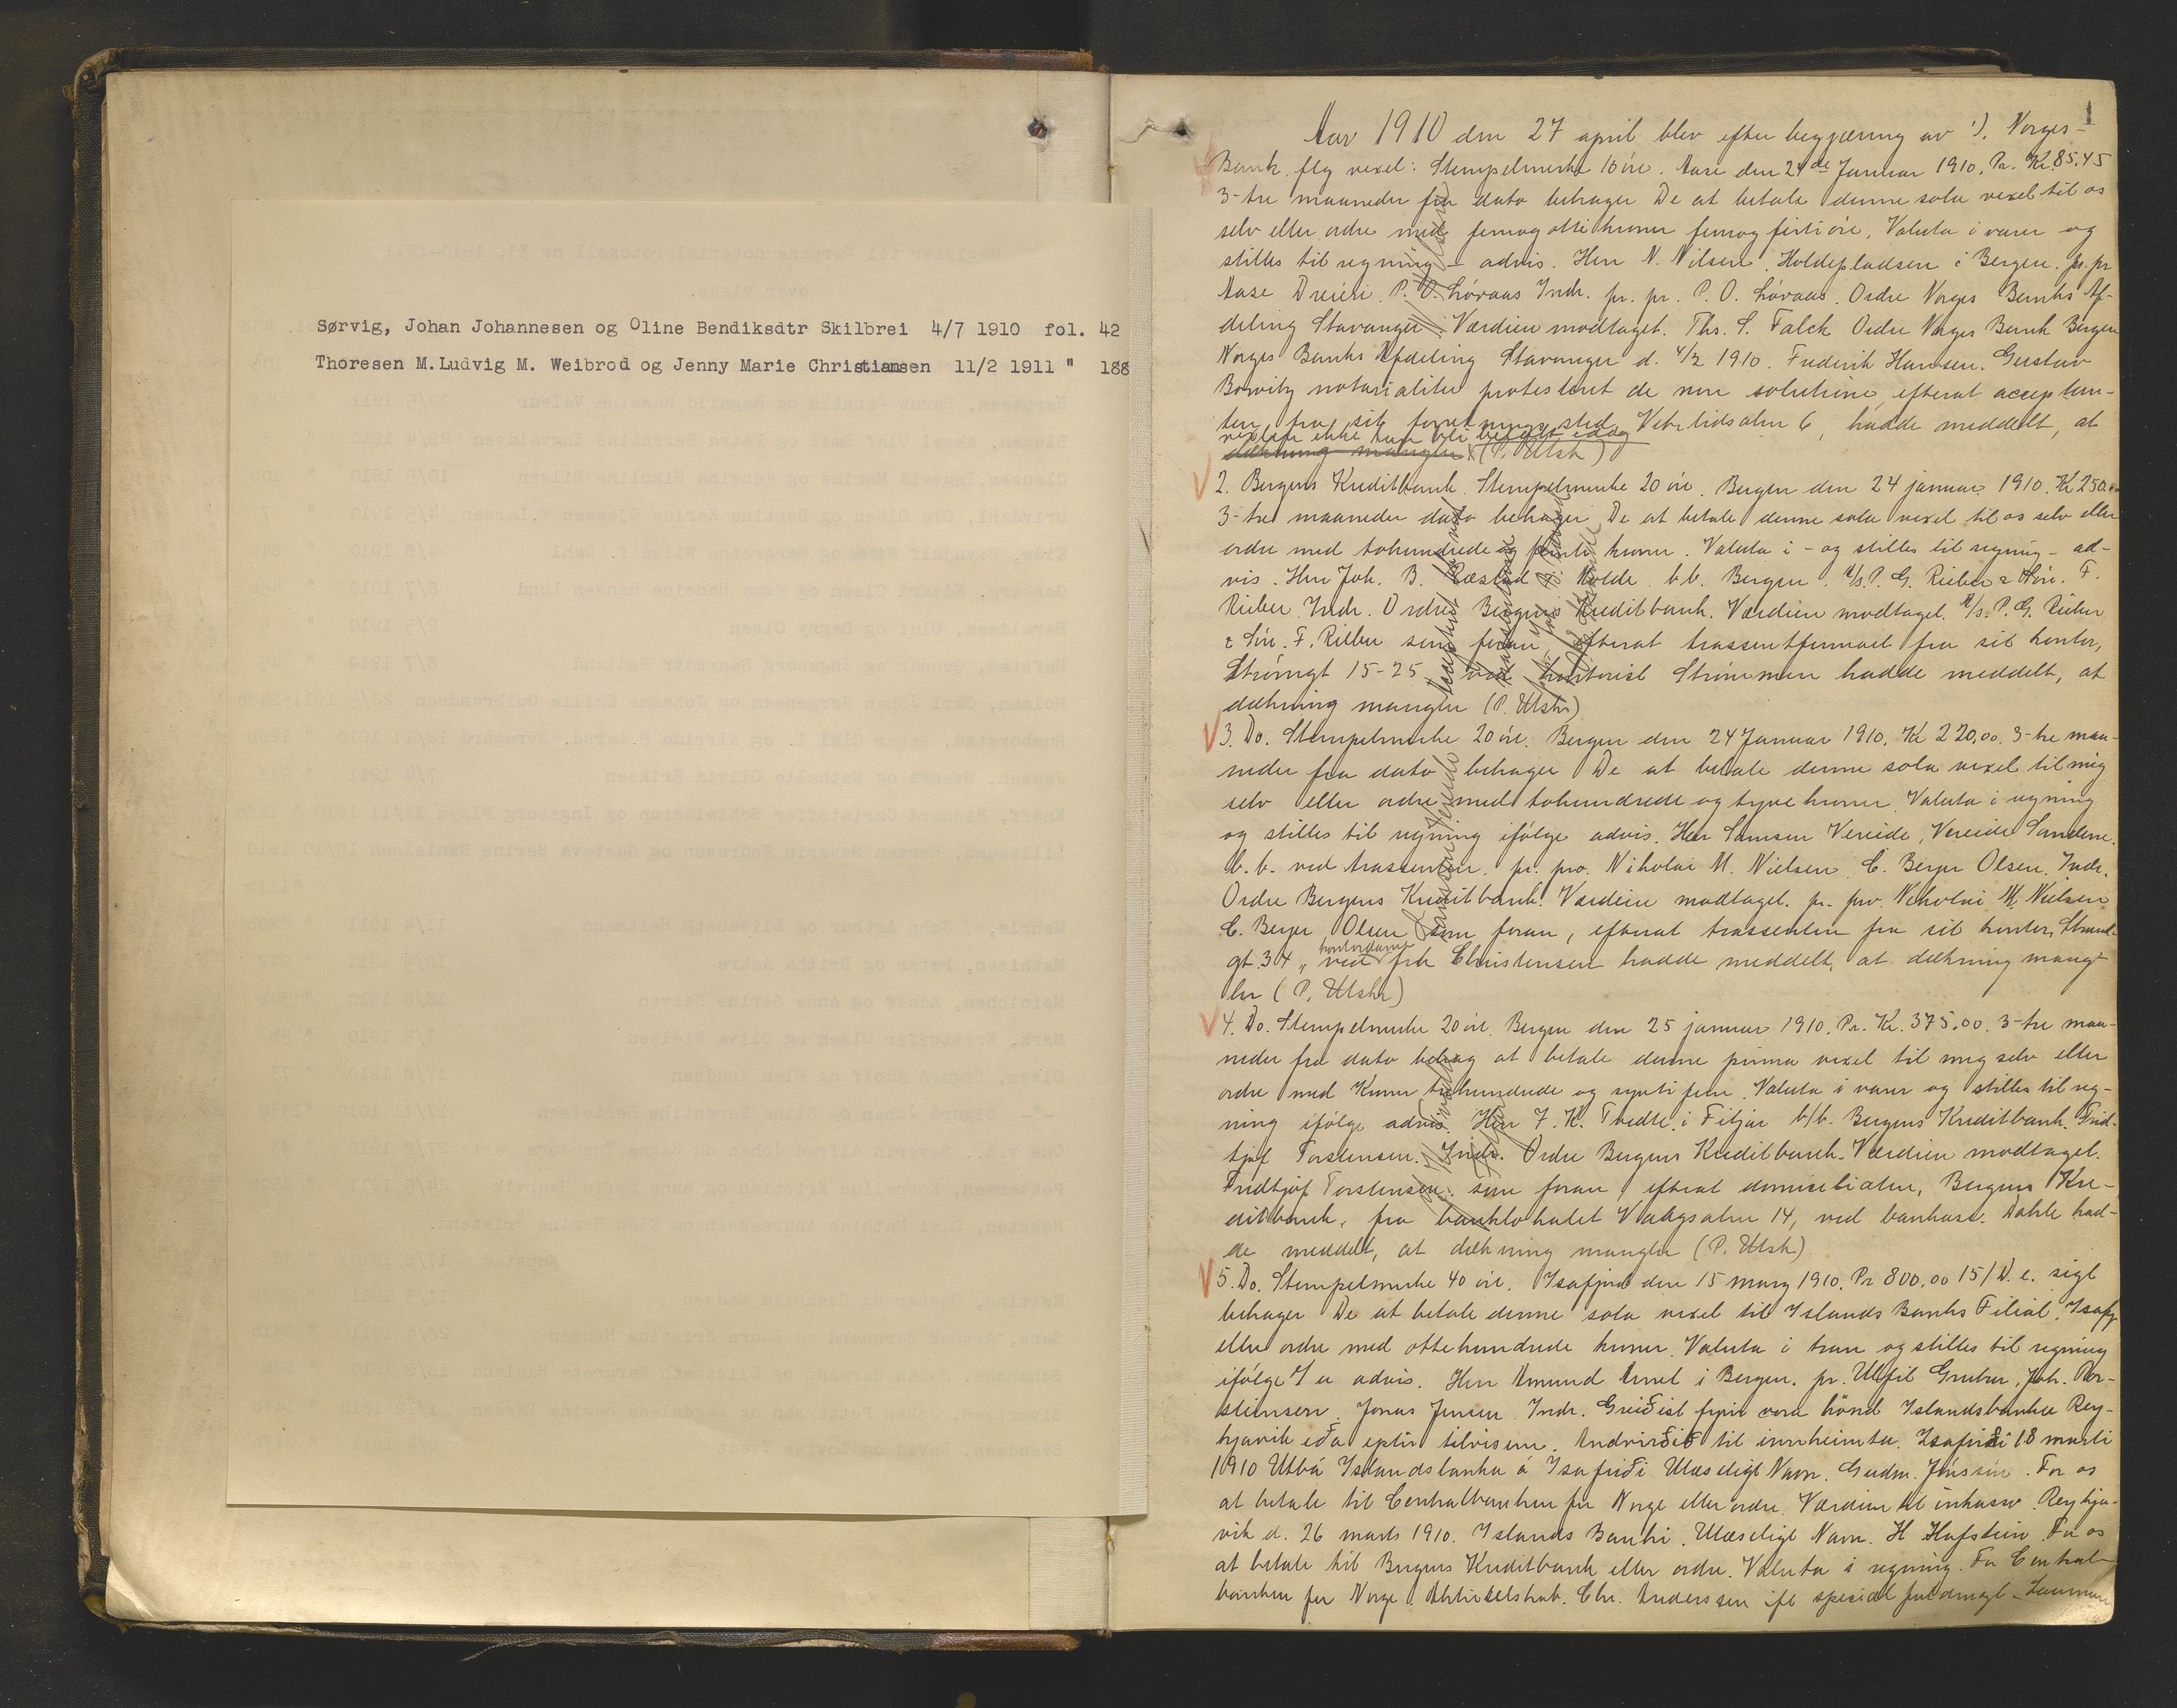 Sørvig, Johan Johannesen og Oline Bendiksdtr Skilbrei 4/7 1910 fol. 42
Thoresen M.Ludvig M. Weibrod og Jenny Marie Christiansen 11/2 1911 " 188
1
Aar 1910 den 27 april blev efter begjæring av 1). Norges
Bank flg vexel: Stempelmerke 10 öre. Aase den 24de Januar 1910. Pr. Kr. 85.45
3-tre maaneder fra dato behager De at betale denne sola vexel til os
selv eller ordre med femogotti kroner femogfirti öre, Valuta i varer og
stilles til regning - advis. Herr N. Nilsen Holdepladsen i Bergen. pr. pr
Aase Dreieri. P. O. Lóvaas Indr. pr. pr. P. O. Lóvaas. Ordre Norges Banks Af-
deling Stavanger. Værdien modtaget. Ths. S. Falck Ordre Norges Bank Bergen
Norges Banks Afdeling Stavanger d. 4/2 1910. Frederik Hansen. Gustav
notarialiter protesteret de non solutione, efterat acceptan-
ten fra sit forretningssted, 6, hadde meddelt, at
vexelen ikke kan bli betalt idag
dækning mangler (P. Utsh)
2. Bergens Kreditbank. Stempelmerke 20 öre. Bergen den 24 januar 1910. Kr 250.00
3-tre maaneder dato behager De at betale denne sola vexel til os selv eller
ordre med tohundrede og femti kroner. Valuta i - og stilles til regning - ad-
vis. Herr Joh. B. Molde b.b. Bergen. A/S. P. G. Rieber & Sön. F.
Rieber. Indr. Ordre Bergens Kreditbank. Værdien modtaget. A/S. P. G. Rieber
& Sön. F. Rieber som foran, efterat trassentfirmaet fra sit kontor,
Strömgt 15-25 ved kontorist Strömmen hadde meddelt, at
dækning mangler (P. Utsh)
3. Do. Stempelmerke 20 öre. Bergen den 24 Januar 1910. Kr 220,00. 3-tre maa-
neder fra dato behager De at betale denne sola vexel til mig
selv eller ordre med tohundrede og tyve kroner. Valuta i regning
og stilles til regning ifölge advis. Herr Samson Vereide, Vereide Sandene.
b. b. ved trassenten. pr. pro. Nikolai M. Nielsen C. Beyer Olsen. Indr.
Ordre Bergens Kreditbank. Værdien modtaget. pr. pro. Nikolai M. Nielsen
C. Beyer Olsen som foran, efterat trassenten fra sit kontor, Strand-
gt. 34, ved kontordame frk Christensen hadde meddelt, at dækning mang-
ler (P. Utsh)
4. Do. Stempelmerke 20 öre. Bergen den 25 januar 1910. Pr. Kr. 375.00. 3-tre maa-
neder fra dato behag at betale denne prima vexel til mig selv eller
ordre med Kroner trehundrede og sytti fem. Valuta i varer og stilles til reg-
ning ifölge advis. Herr F. K. Tvedte i Fitjar b/b. Bergens Kreditbank. Frid-
tjof Torstensen. Indr. Ordre Bergens Kreditbank. Værdien modtaget.
Fridtjof Torstensen. som foran, efterat domiciliaten, Bergens Kre-
ditbank, fra banklokalet Vaagsalm 14, ved bankass. Dahle had-
de meddelt, at dækning mangler (P. Utsh)
5. Do. Stempelmerke 40 öre. Isafjord den 15 marz 1910. Pr 800,00 15/D. e. sigt
behager De at betale denne sola vexel til Islands Banks Filial, Isafj.
eller ordre med ottehundrede kroner. Valuta i tran og stilles til regning
ifölge advis. Herr Amund Arnet i Bergen. pr.
Jonas Jensen Indr. Greiðist fyrir vora hönd Islandsbanka Rey-
kjavik eða eptir tilvisun. Andvirðið til innheimtu. Isafirði 18 marts
1910 Utbú Islandsbanka á Isafirði Ulæseligt Navn. Gudm. Jónsson. For os
at betale til Centralbanken for Norge eller ordre. Værdien til inkasso. Reykja-
vik d. 26 marts 1910. Islands Banki. Ulæseligt Navn. H Hafstein For os
at betale til Bergens Kreditbank eller ordre. Valuta i regning. For Central-
banken for Norge. Aktieselskab. Chr. Anderssen ifl special fuldmagt